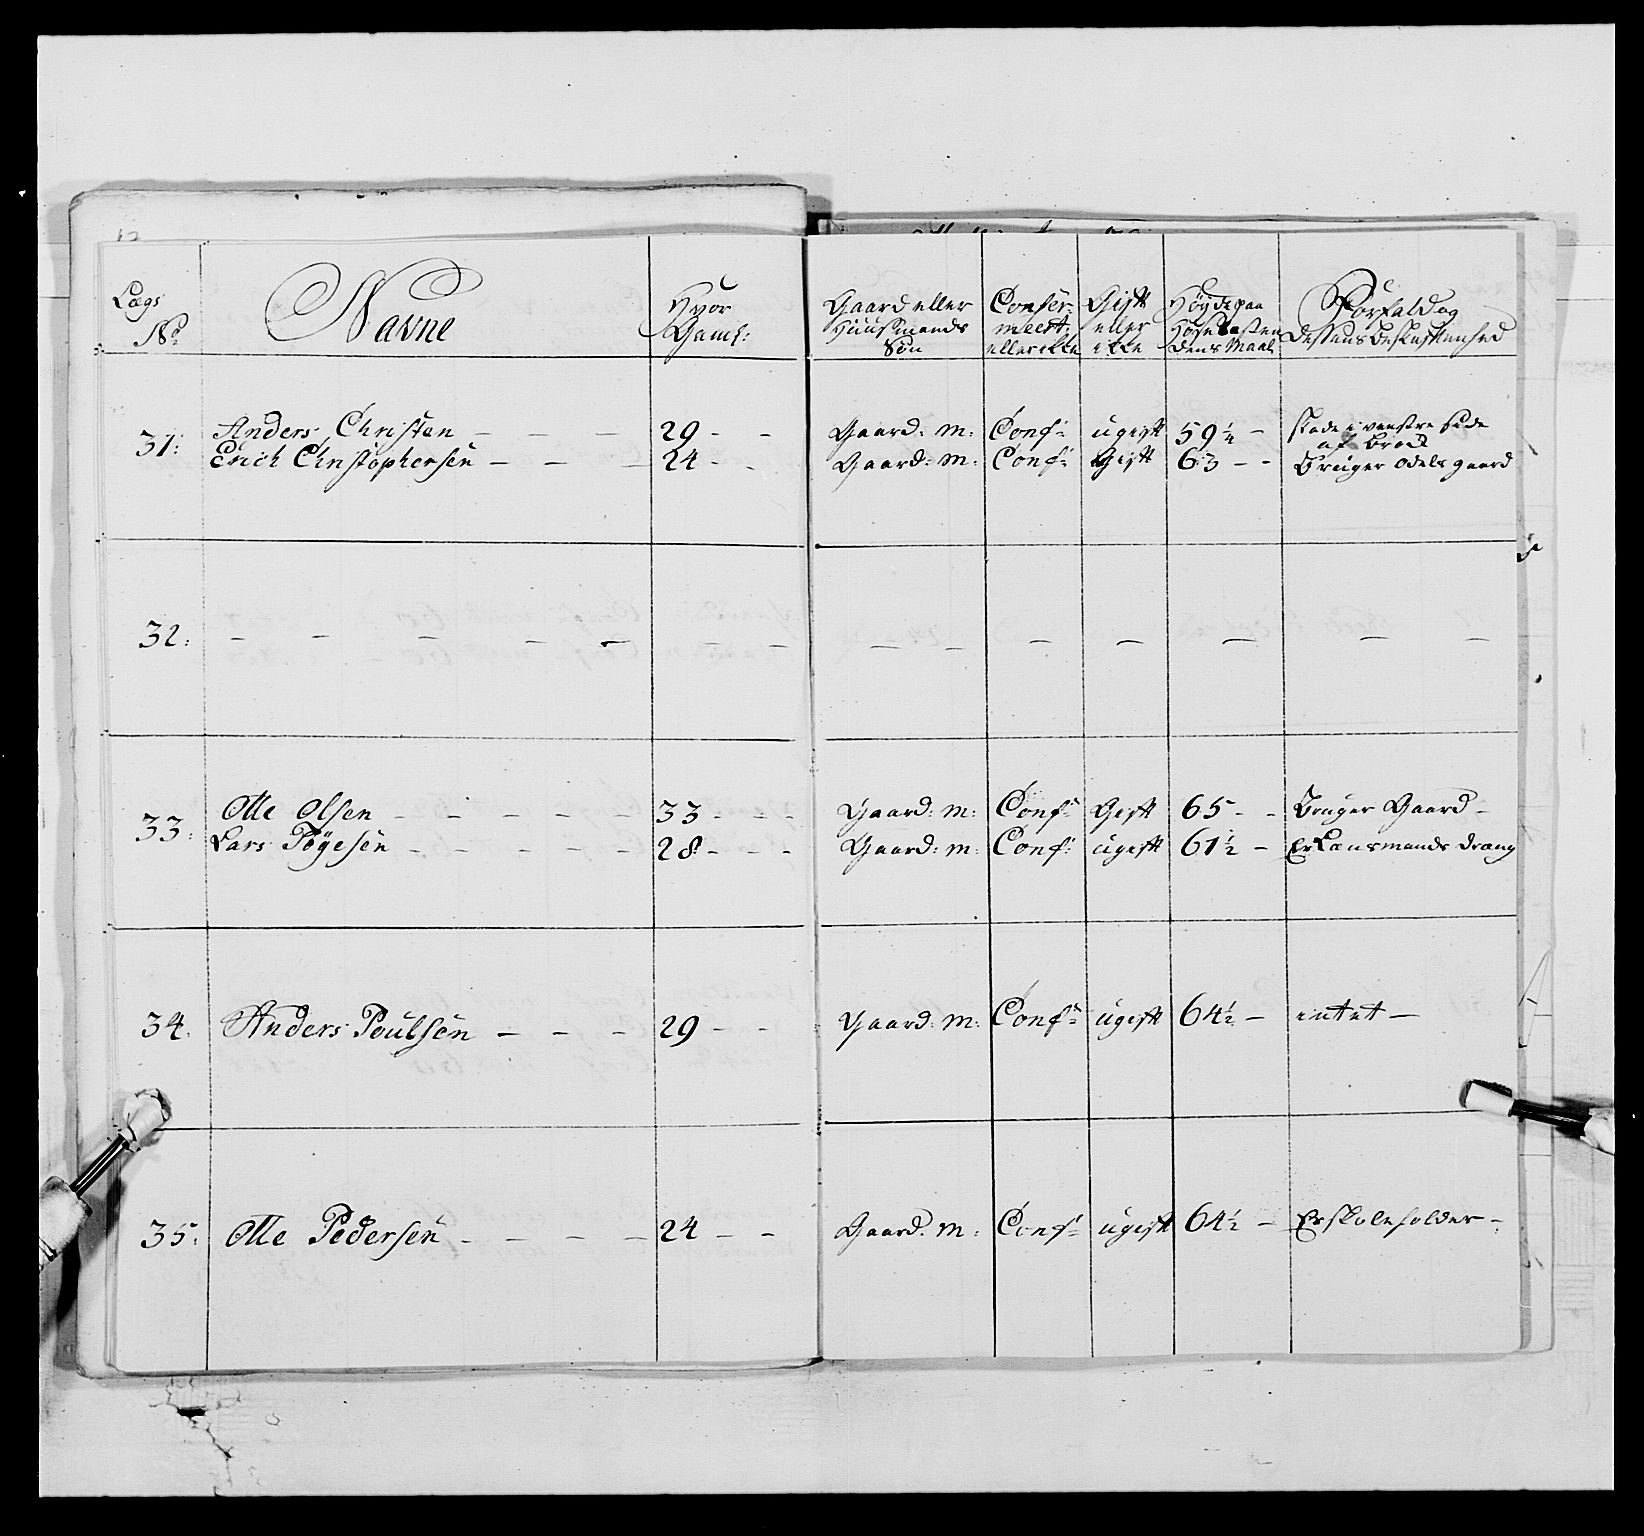 Lægs No | Navne | Hvor Gaml: | Gaard eller Huusmands Søn | Confer-meert: eller ikke | Gift eller ikke | Høyde paa Hose Sosten dens Maal | Forfald og dessens beskaffenhed
31: | Anders Christen — — — | 29 - - | Gaard: m: | Conf: | ugift | 59 1/4 - | skade i venstre side af brock
Erich Christophersen — — — | 24 - - | Gaard: m: | Conf: | Gift | 63 - - | bruger odels gaard
32: — — — — — — — — — — — — — —
33: | Olle Olsen - - - - - | 33 - - - | Gaard: m: | Conf: | Gift | 65 - - | bruger Gaard -
Lars Tøgesen - - - - - | 28 - - - | Gaard: m: | Conf: | ugift | 61 1/2 - | Er Lænsmands dræng
34. | Anders Poulsen — — — | 29 - - | Gaard: m: | Conf: | ugift | 64 1/2 — | intet —
35. | Olle Pedersen - - - - | 24 - - | Gaard: m: | Conf: | ugift | 64 1/2 - | Er skoleholder -